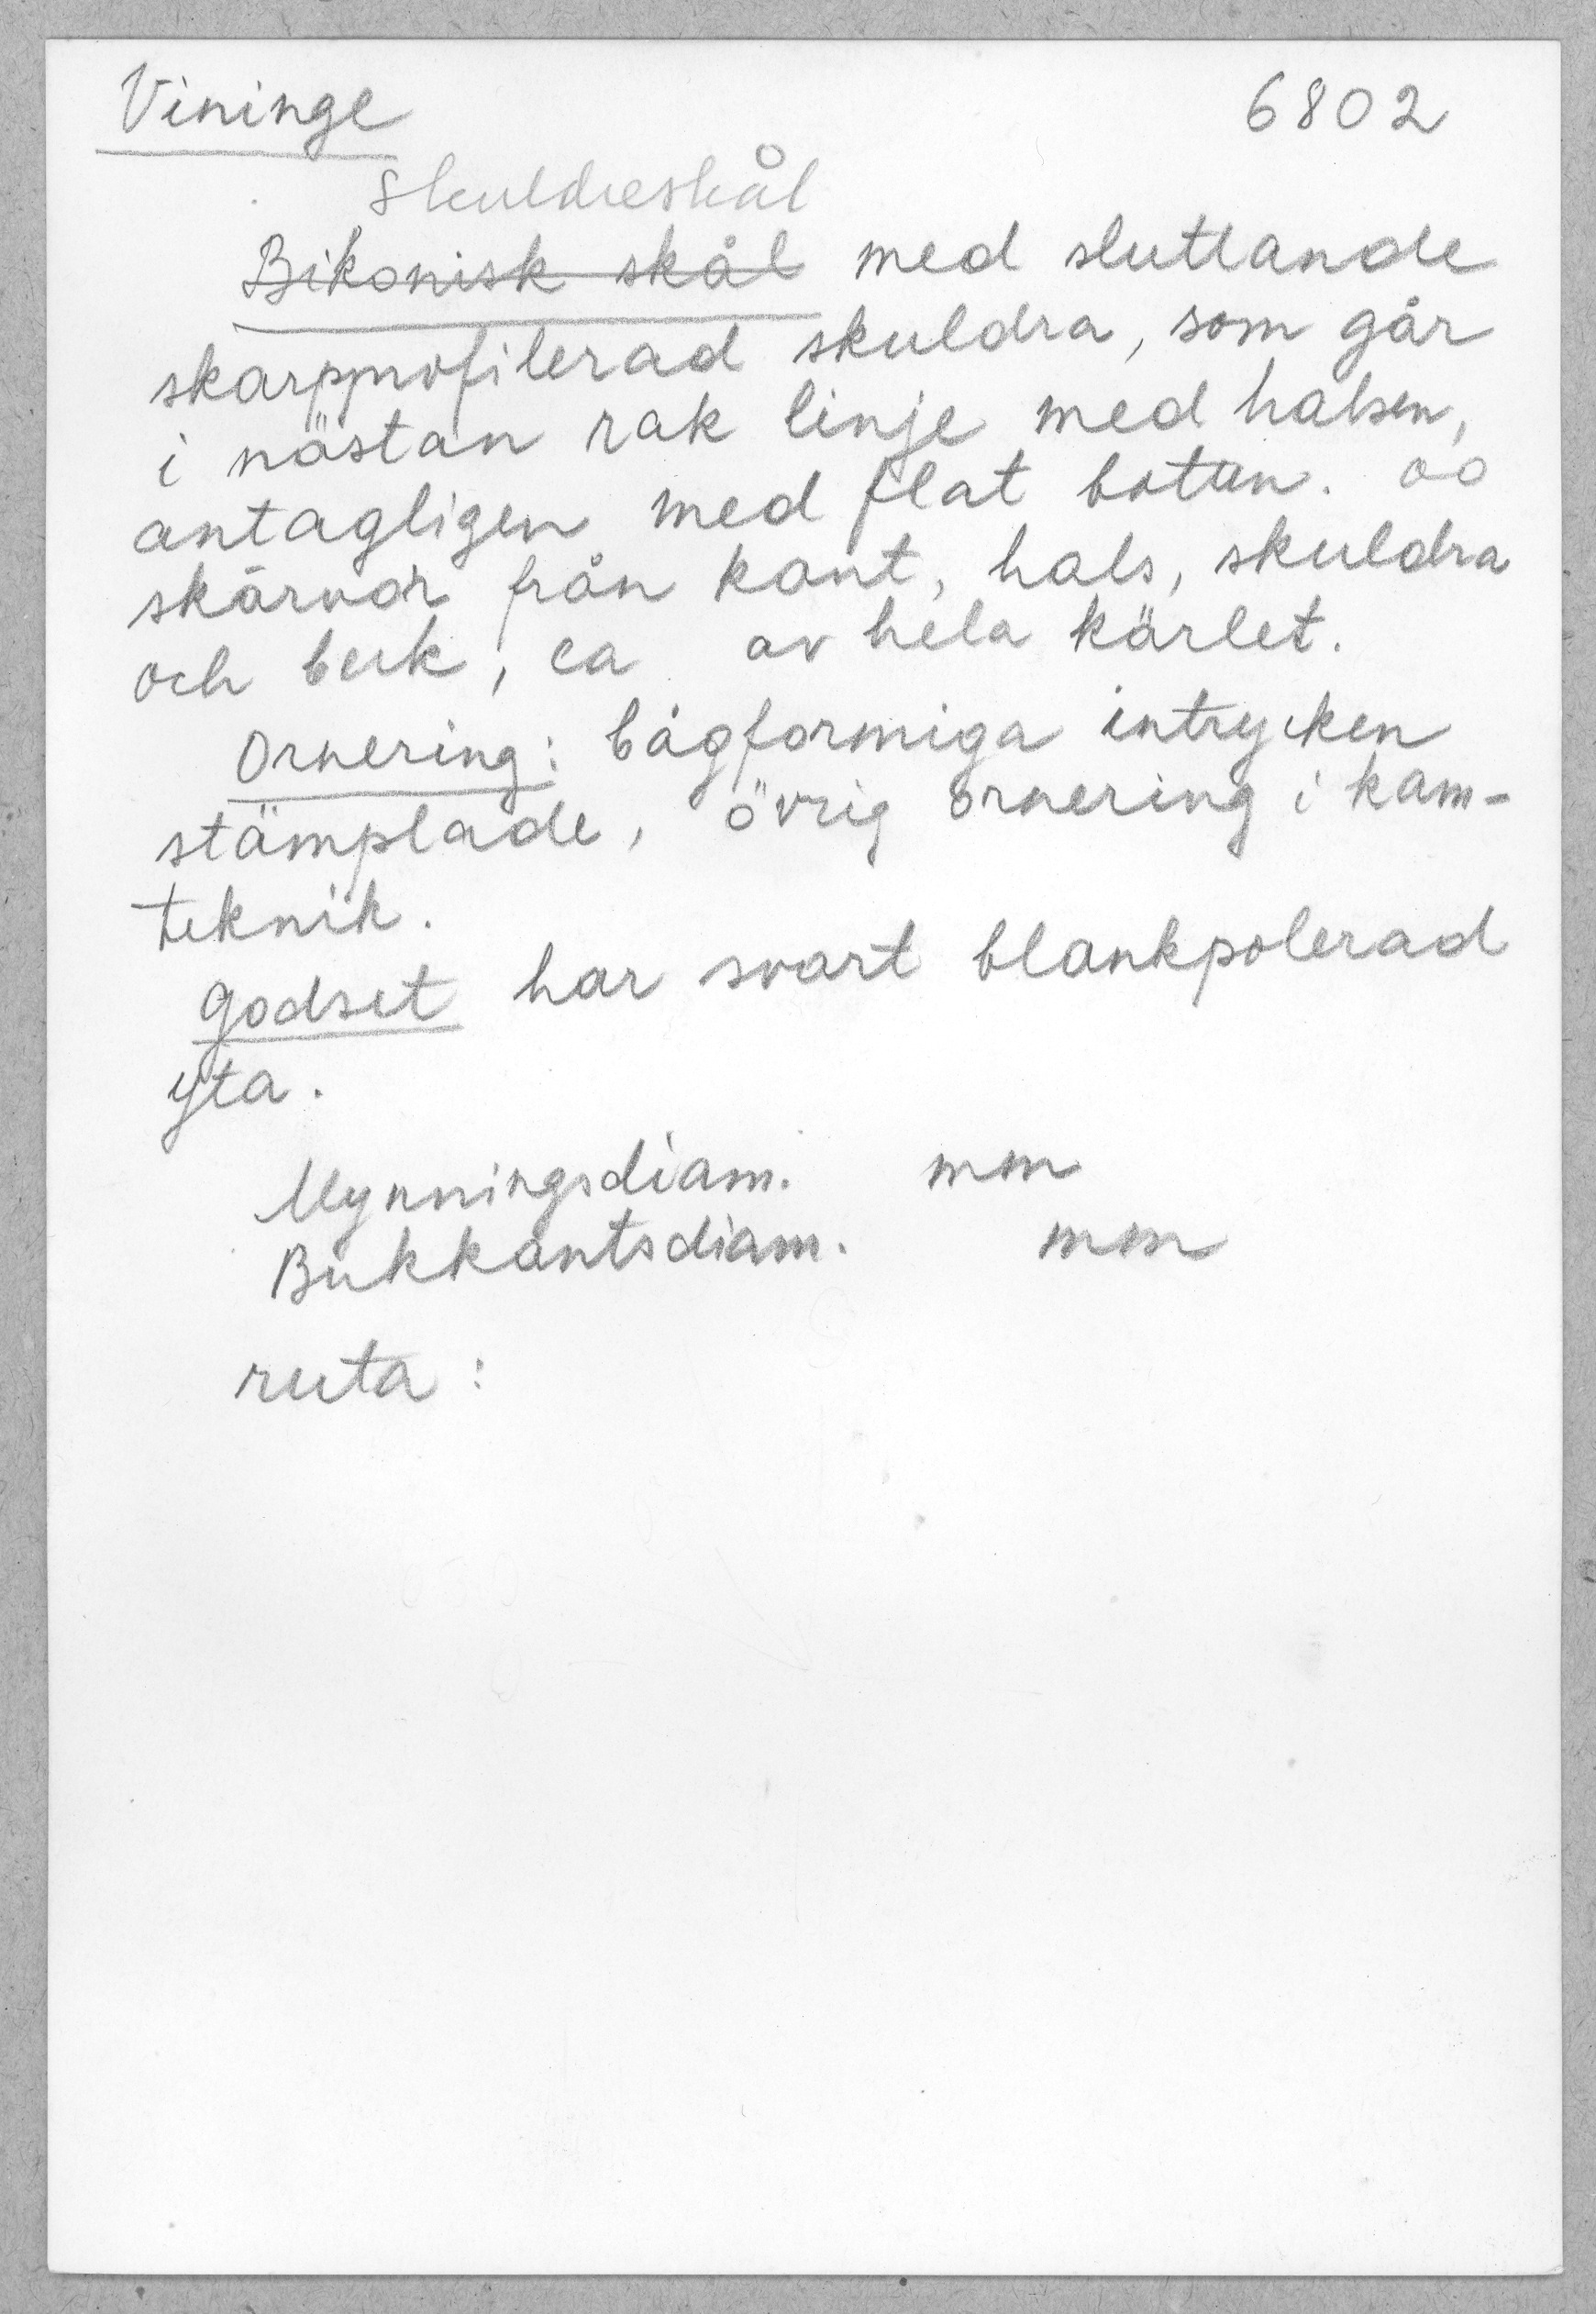 Vininge 6802
Skuldreskål
Bikonisk skål med sluttande
skarpprofilerad skuldra, som går
i nästan rak linje med halsen,
antagligen med flat botten. oo
skärvor från kant, hals, skuldra
och buk, ca av hela kärlet.
Ornering: bågformiga intrycken
stämplade, övrig ornering i kam-
teknik.
Godset har svart blankpolerad
yta.
Mynningsdiam. mm
Bukkantsdiam. mm
ruta: